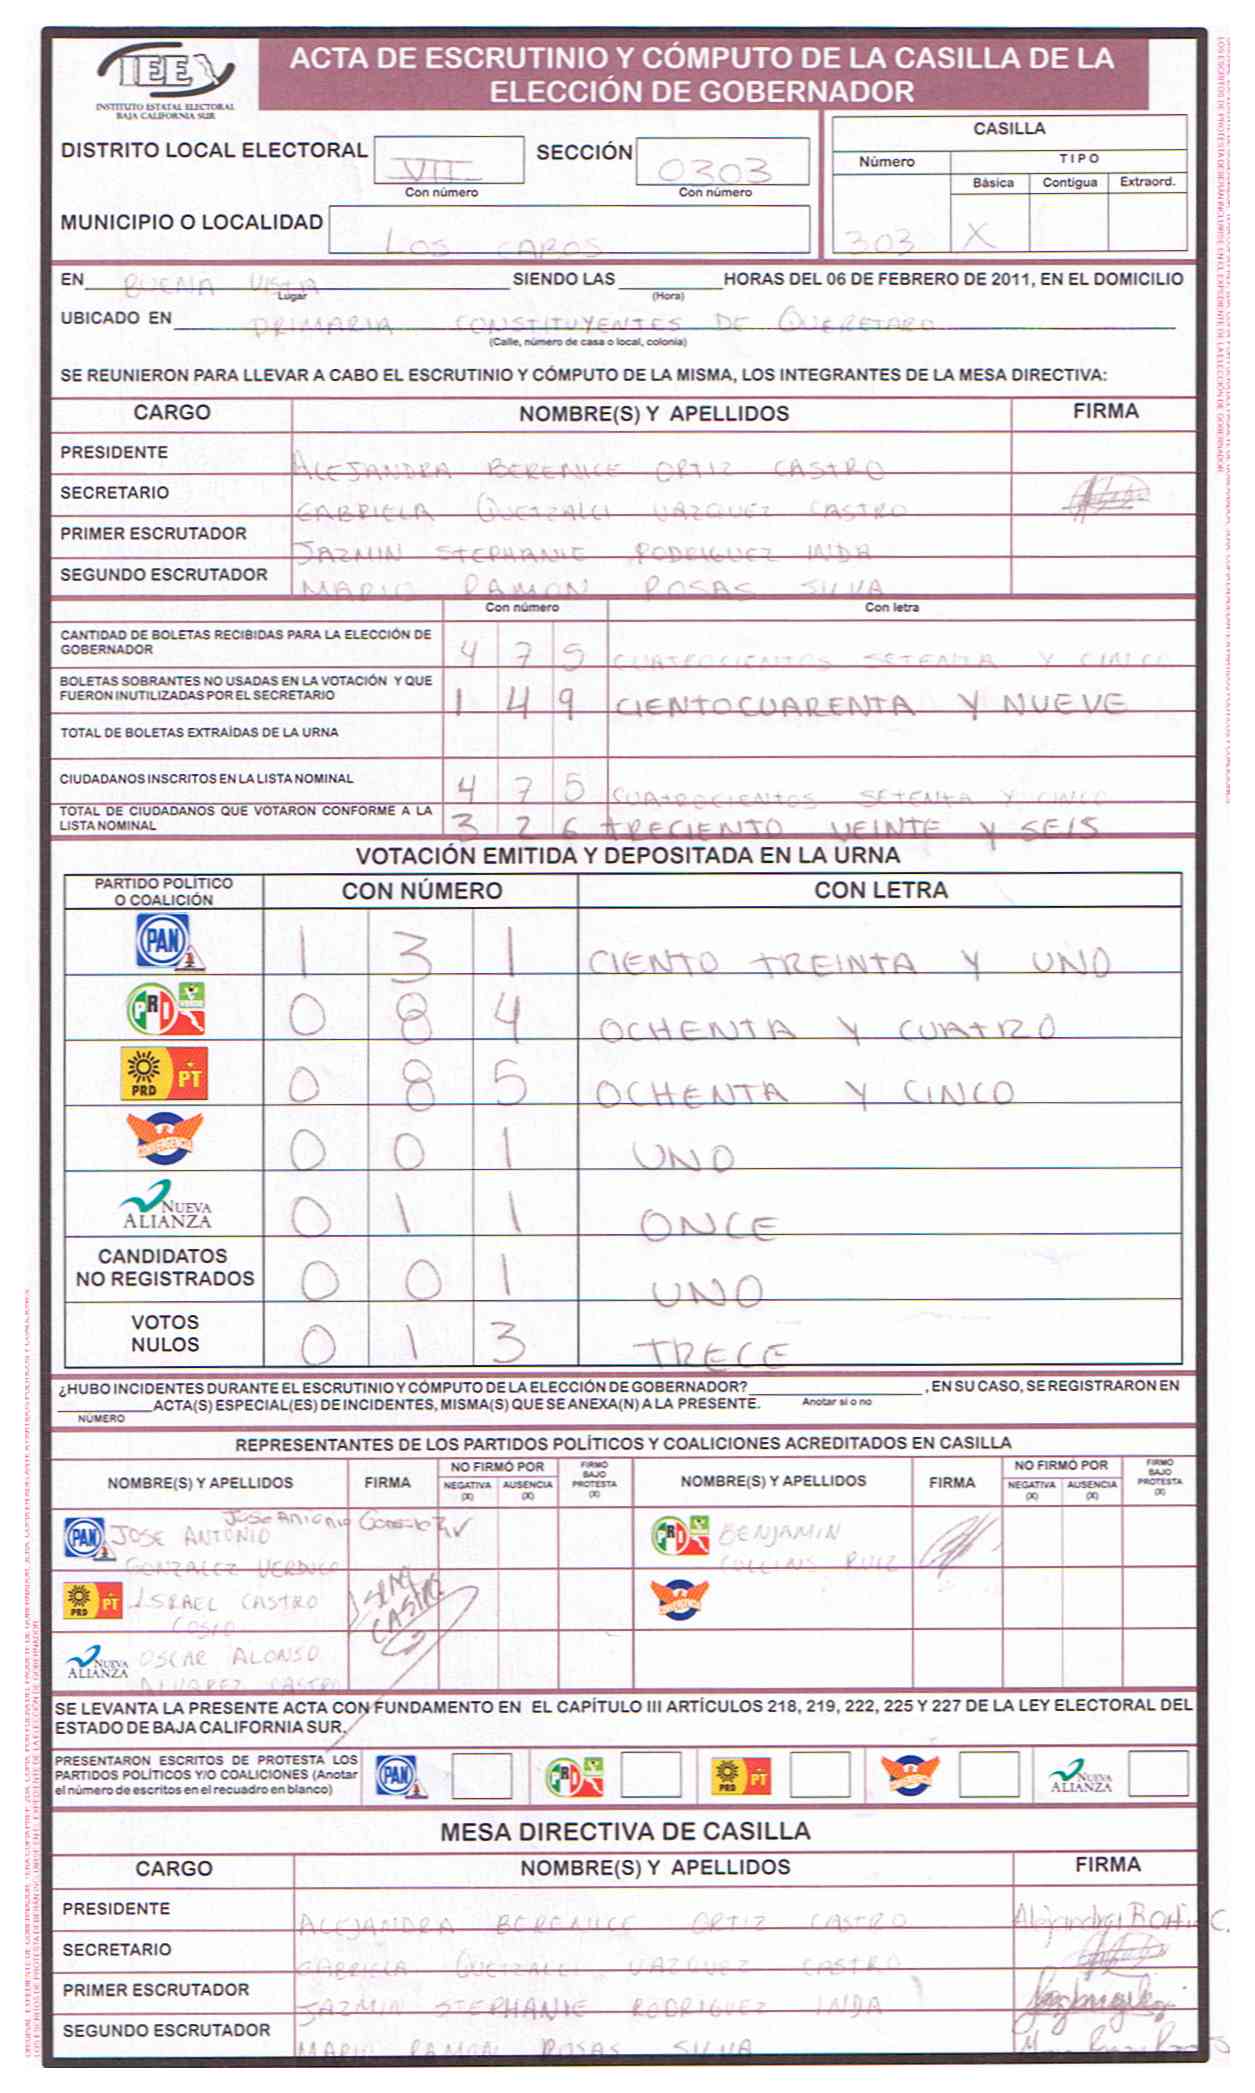 IEE
INSTITUTO ESTATAL ELECTORAL
BAJA CALIFORNIA SUR
ACTA DE ESCRUTINIO Y CÓMPUTO DE LA CASILLA DE LA
ELECCIÓN DE GOBERNADOR
DISTRITO LOCAL ELECTORAL VII SECCIÓN 0303
Con número Con número
CASILLA
Número TIPO
Básica Contigua Extraord.
303 X
MUNICIPIO O LOCALIDAD LOS CABOS
EN BUENA VISTA SIENDO LAS HORAS DEL 06 DE FEBRERO DE 2011, EN EL DOMICILIO
Lugar (Hora)
UBICADO EN PRIMARIA CONSTITUYENTES DE QUERETARO
(Calle, número de casa o local, colonia)
SE REUNIERON PARA LLEVAR A CABO EL ESCRUTINIO Y CÓMPUTO DE LA MISMA, LOS INTEGRANTES DE LA MESA DIRECTIVA:
CARGO NOMBRE(S) Y APELLIDOS FIRMA
PRESIDENTE ALEJANDRA BERENICE ORTIZ CASTRO
SECRETARIO GABRIELA QUETZALLI VAZQUEZ CASTRO
PRIMER ESCRUTADOR JAZMIN STEPHANIE RODRIGUEZ INDA
SEGUNDO ESCRUTADOR MARIO RAMON ROSAS SILVA
Con número Con letra
CANTIDAD DE BOLETAS RECIBIDAS PARA LA ELECCIÓN DE
GOBERNADOR 4 7 5 CUATROCIENTOS SETENTA Y CINCO
BOLETAS SOBRANTES NO USADAS EN LA VOTACIÓN Y QUE
FUERON INUTILIZADAS POR EL SECRETARIO 1 4 9 CIENTOCUARENTA Y NUEVE
TOTAL DE BOLETAS EXTRAÍDAS DE LA URNA
CIUDADANOS INSCRITOS EN LA LISTA NOMINAL 4 7 5 CUATROCIENTOS SETENTA Y CINCO
TOTAL DE CIUDADANOS QUE VOTARON CONFORME A LA
LISTA NOMINAL 3 2 6 TRECIENTO VEINTE Y SEIS
VOTACIÓN EMITIDA Y DEPOSITADA EN LA URNA
PARTIDO POLÍTICO
O COALICIÓN CON NÚMERO CON LETRA
PAN 1 3 1 CIENTO TREINTA Y UNO
PRI 0 8 4 OCHENTA Y CUATRO
PRD PT 0 8 5 OCHENTA Y CINCO
CONVERGENCIA 0 0 1 UNO
NUEVA ALIANZA 0 1 1 ONCE
CANDIDATOS
NO REGISTRADOS 0 0 1 UNO
VOTOS
NULOS 0 1 3 TRECE
¿HUBO INCIDENTES DURANTE EL ESCRUTINIO Y CÓMPUTO DE LA ELECCIÓN DE GOBERNADOR? , EN SU CASO, SE REGISTRARON EN
ACTA(S) ESPECIAL(ES) DE INCIDENTES, MISMA(S) QUE SE ANEXA(N) A LA PRESENTE. Anotar si o no
NÚMERO
REPRESENTANTES DE LOS PARTIDOS POLÍTICOS Y COALICIONES ACREDITADOS EN CASILLA
NOMBRE(S) Y APELLIDOS FIRMA NO FIRMÓ POR NEGATIVA (X) AUSENCIA (X) FIRMÓ BAJO PROTESTA (X) NOMBRE(S) Y APELLIDOS FIRMA NO FIRMÓ POR NEGATIVA (X) AUSENCIA (X) FIRMÓ BAJO PROTESTA (X)
PAN JOSE ANTONIO Jose Antonio PRI BENJAMIN
GONZALEZ VERDUGO COLLINS RUIZ
PRD PT ISRAEL CASTRO ISRAEL CASTRO CONVERGENCIA
COSIO
NUEVA ALIANZA OSCAR ALONSO
ALVAREZ CASTRO
SE LEVANTA LA PRESENTE ACTA CON FUNDAMENTO EN EL CAPÍTULO III ARTÍCULOS 218, 219, 222, 225 Y 227 DE LA LEY ELECTORAL DEL
ESTADO DE BAJA CALIFORNIA SUR.
PRESENTARON ESCRITOS DE PROTESTA LOS
PARTIDOS POLÍTICOS Y/O COALICIONES (Anotar
el número de escritos en el recuadro en blanco) PAN PRI PRD PT CONVERGENCIA NUEVA ALIANZA
MESA DIRECTIVA DE CASILLA
CARGO NOMBRE(S) Y APELLIDOS FIRMA
PRESIDENTE ALEJANDRA BERENICE ORTIZ CASTRO Alejandra B Ortiz C.
SECRETARIO GABRIELA QUETZALLI VAZQUEZ CASTRO
PRIMER ESCRUTADOR JAZMIN STEPHANIE RODRIGUEZ INDA
SEGUNDO ESCRUTADOR MARIO RAMON ROSAS SILVA